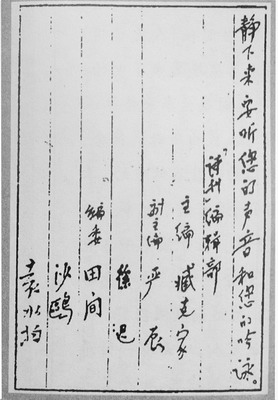 静下来要听您的声音和您的吟咏。
“诗刊”编辑部
主编 臧克家
副主编 严辰
徐迟
编委 田间
沙鸥
袁水拍